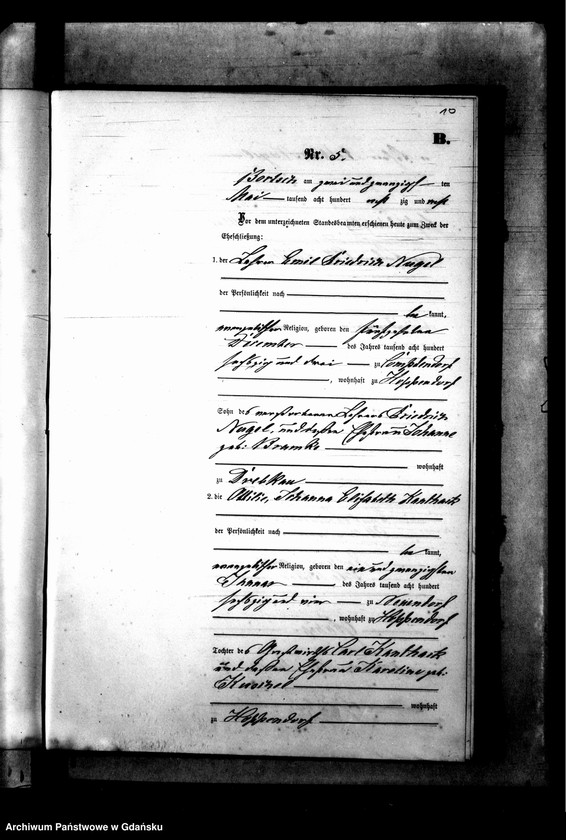 10
B.
Nr. 5.
am zwei und zwanzigsten
Mai tausend acht hundert zig und
Vor dem unterzeichneten Standesbeamten erschienen heute zum Zweck der
Eheschließung:
1. der Lehrer Emil Friedrich Nagel
der Persönlichkeit nach
be kannt,
evangelischer Religion, geboren den fünfzehnten
December des Jahres tausend acht hundert
sechszig und drei zu
, wohnhaft zu Hoppendorf
Sohn des verstorbenen Lehrers Friedrich
Nagel, und dessen Ehefrau Johanne
geb.
wohnhaft
zu Drebkau
2. die Ottilie, Johanna Elisabeth
der Persönlichkeit nach
be kannt,
evangelischer Religion, geboren den ein und zwanzigsten
Januar des Jahres tausend acht hundert
sechszig und vier zu Neuendorf
, wohnhaft zu Hoppendorf
Tochter des Gastwirths Carl
und dessen Ehefrau Karoline geb.
wohnhaft
zu Hoppendorf
Archiwum Państwowe w Gdańsku